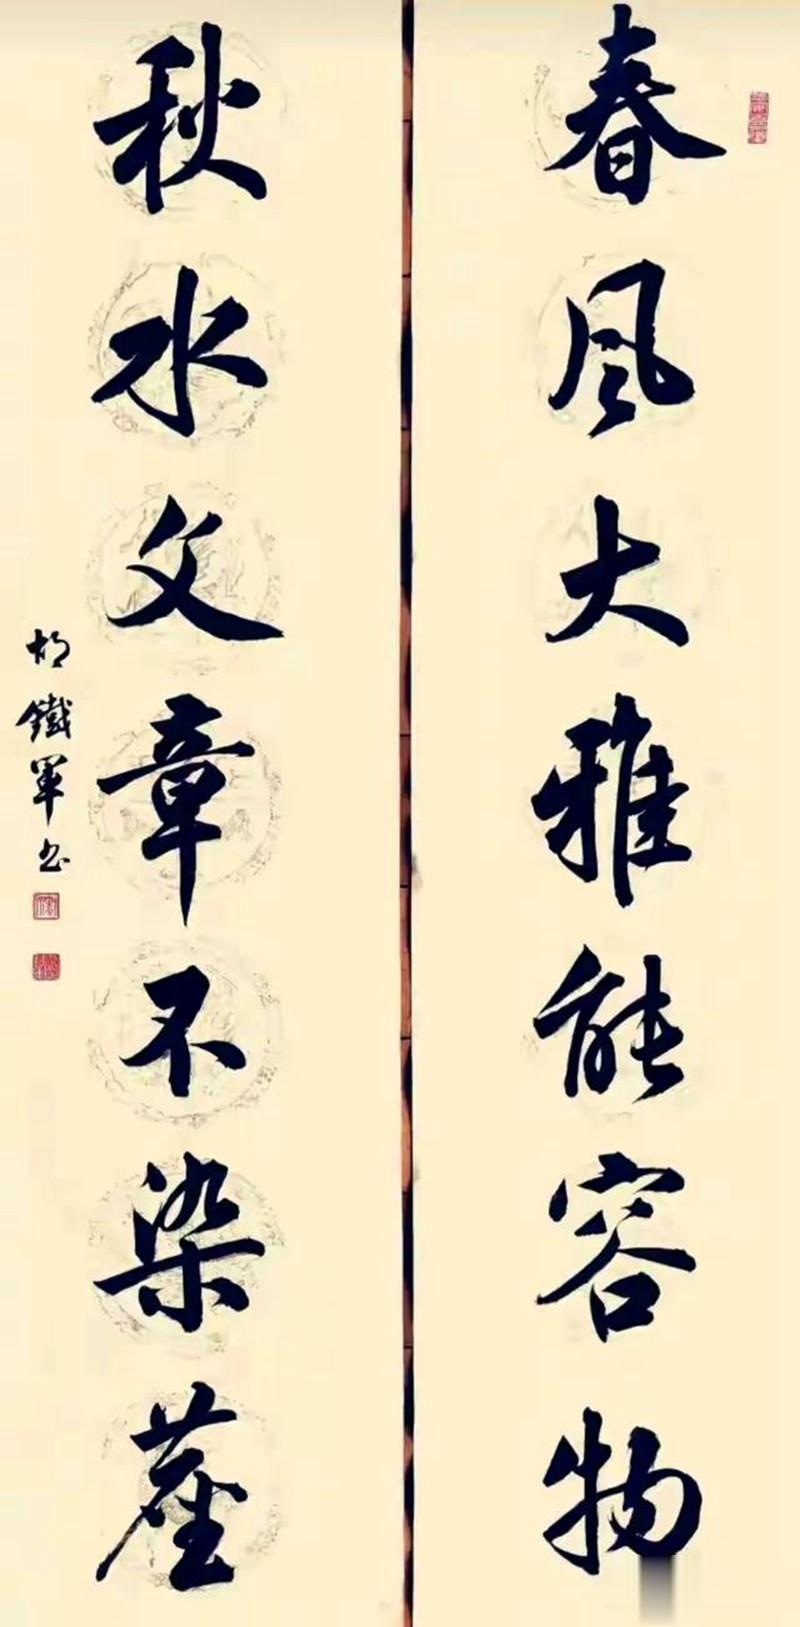 春風大雅能容物
秋水文章不染塵
胡鐵軍书